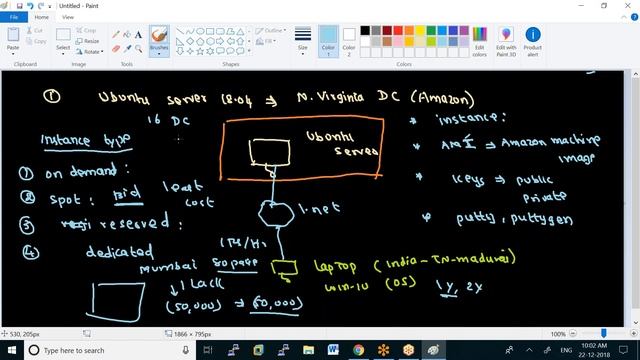 Untitled - Paint
File Home View
Paste
Clipboard
Select
Image
Tools
Brushes
Shapes
Outline
Fill
Size
Color 1
Color 2
Colors
Edit colors
Edit with Paint 3D
Product alert
① Ubuntu server 18.04 ⇒ N. Virginia DC (Amazon)
16 DC
Instance type
① on demand:
② spot: Bid least cost
③ reserved:
④ dedicated
mumbai
1 Lack
(50,000) ⇒ (50,000)
Ubuntu server
I.net
Laptop (India - TN - madurai)
win-10 (OS) 1y, 2y
* instance:
* AMI ⇒ Amazon machine image
* keys ⇒ public
private
* putty, puttygen
530, 205px
1866 × 795px
100%
Type here to search
ENG
10:02 AM
22-12-2018